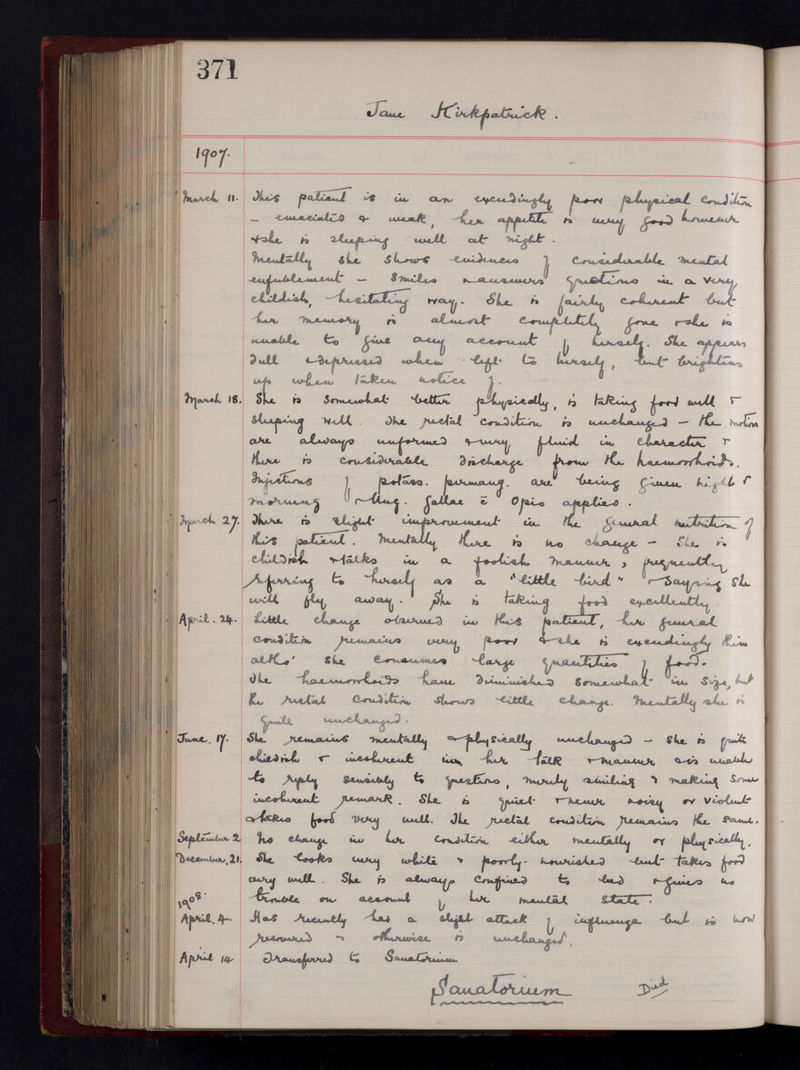 371
Jane Kirkpatrick.
1907.
March 11. This patient is in an exceedingly poor physical condition
- emaciated & weak, her appetite is very good however
& she is sleeping well at night.
Mentally she shows evidences of considerable mental
enfeeblement - smiles & answers questions in a very
childish, hesitating way. She is fairly coherent but
her memory is almost completely gone & she is
unable to give any account of herself. She appears
dull & depressed when left to herself, but brightens
up when taken notice of.
March 18. She is somewhat better physically, is taking food well &
sleeping well. The rectal condition is unchanged - the motions
are always unformed & very fluid in character &
there is considerable discharge from the haemorrhoids.
Injections of potass. permang. are being given night &
morning & Ung. Gallae c̄ Opio applied.
March 27. There is slight improvement in the general nutrition of
this patient. Mentally there is no change - She is
childish & talks in a foolish manner, frequently
referring to herself as a "little bird" & saying she
will fly away. She is taking food excellently.
April. 24. Little change observed in this patient, her general
condition remains very poor & she is exceedingly thin
altho' she consumes large quantities of food.
The haemorrhoids have diminished somewhat in size, but
the rectal condition shows little change. Mentally she is
quite unchanged.
June. 17. She remains mentally & physically unchanged - she is quite
childish & incoherent in her talk & manner & is unable
to reply sensibly to questions, merely smiling & making some
incoherent remark. She is quiet & never noisy or violent
& takes food very well. The rectal condition remains the same.
September 2 No change in her condition either mentally or physically.
December. 21. She looks very white & poorly-nourished but takes food
very well. She is always confined to bed & gives no
trouble on account of her mental state.
1908.
April. 4. Has recently had a slight attack of influenza but is now
recovered & otherwise is unchanged.
April 14 Transferred to Sanatorium
Sanatorium Died